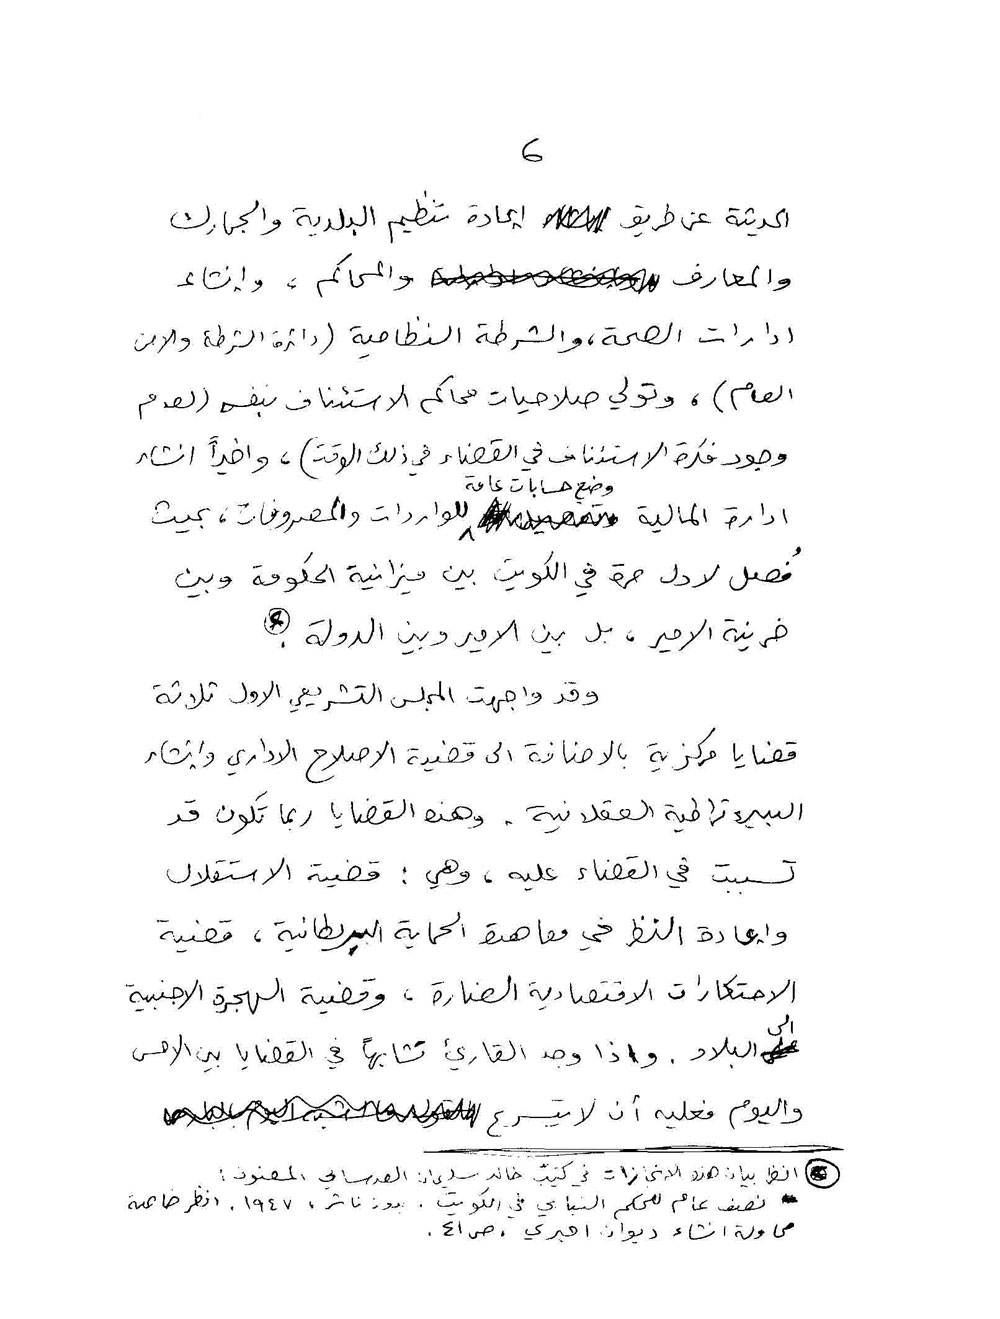 6
الحديثة عن طريق اعادة تنظيم البلدية والجمارك
والمعارف والمحاكم ، وانشاء
ادارات الصحة ، والشرطة النظامية (دائرة الشرطة والامن
العام) ، وتولي صلاحيات محاكم الاستئناف بنفسه (لعدم
وجود فكرة الاستئناف في القضاء في ذلك الوقت) ، واخيراً انشاء
وضع حسابات عامة
ادارة المالية للواردات والمصروفات ، بحيث
فُصل لاول مرة في الكويت بين ميزانية الحكومة وبين
خزينة الامير ، بل بين الامير وبين الدولة .
وقد واجهت المجلس التشريعي الاول ثلاثة
قضايا مركزية بالاضافة الى قضية الاصلاح الاداري وانشاء
البيروقراطية العقلانية . وهذه القضايا ربما تكون قد
تسببت في القضاء عليه ، وهي : قضية الاستقلال
واعادة النظر في معاهدة الحماية البريطانية ، قضية
الاحتكارات الاقتصادية الضارة ، وقضية الهجرة الاجنبية
الى
البلاد . واذا وجد القارئ تشابهاً في القضايا بين الامس
واليوم فعليه أن لا يتسرع
انظر بيان هذه الانجازات في كتيب خالد سليمان العدساني المعنون :
نصف عام للحكم النيابي في الكويت . بدون ناشر ، ١٩٤٧ . انظر خاصة
محاولة انشاء ديوان اميري ، ص ٤١ .